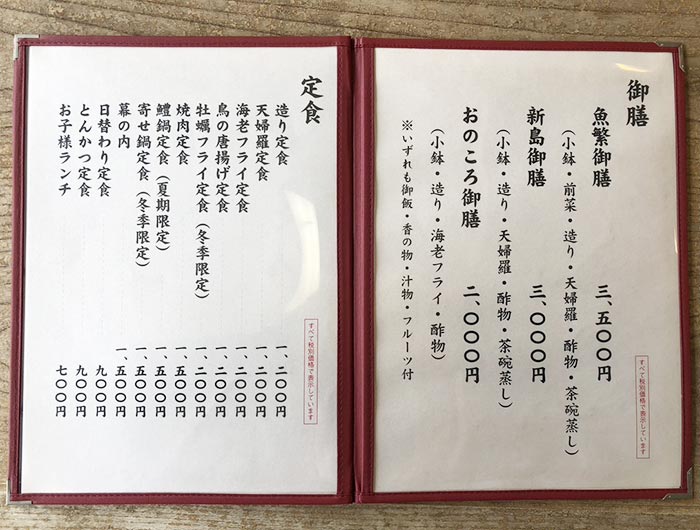 御膳
魚繁御膳 三、五〇〇円
(小鉢・前菜・造り・天婦羅・酢物・茶碗蒸し)
新島御膳 三、〇〇〇円
(小鉢・造り・天婦羅・酢物・茶碗蒸し)
おのころ御膳 二、〇〇〇円
(小鉢・造り・海老フライ・酢物)
※いずれも御飯・香の物・汁物・フルーツ付
すべて税別価格で表示しています
定食
造り定食 一、二〇〇円
天婦羅定食 一、二〇〇円
海老フライ定食 一、二〇〇円
鳥の唐揚げ定食 一、二〇〇円
牡蠣フライ定食(冬季限定) 一、二〇〇円
焼肉定食 一、五〇〇円
鱧鍋定食(夏期限定) 一、五〇〇円
寄せ鍋定食(冬季限定) 一、五〇〇円
幕の内 一、五〇〇円
日替わり定食 九〇〇円
とんかつ定食 九〇〇円
お子様ランチ 七〇〇円
すべて税別価格で表示しています